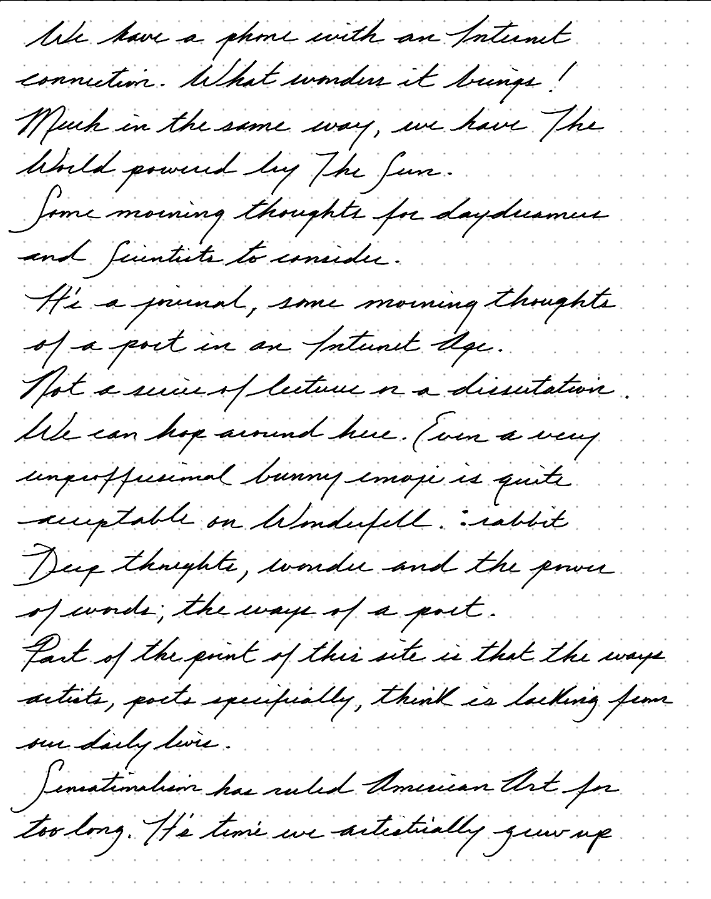 We have a phone with an Internet
connection. What wonders it brings!
Much in the same way, we have The
World powered by The Sun.
Some morning thoughts for daydreamers
and Scientists to consider.
It's a journal, some morning thoughts
of a poet in an Internet Age.
Not a series of lectures or a dissertation.
We can hop around here. Even a very
unproffesional bunny emoji is quite
acceptable on Wonderfell. :rabbit
Deep thoughts, wonder and the power
of words; the ways of a poet.
Part of the point of this site is that the ways
artists, poets specifially, think is lacking from
our daily lives.
Sensationalism has ruled American Art for
too long. It's time we artistically grew up